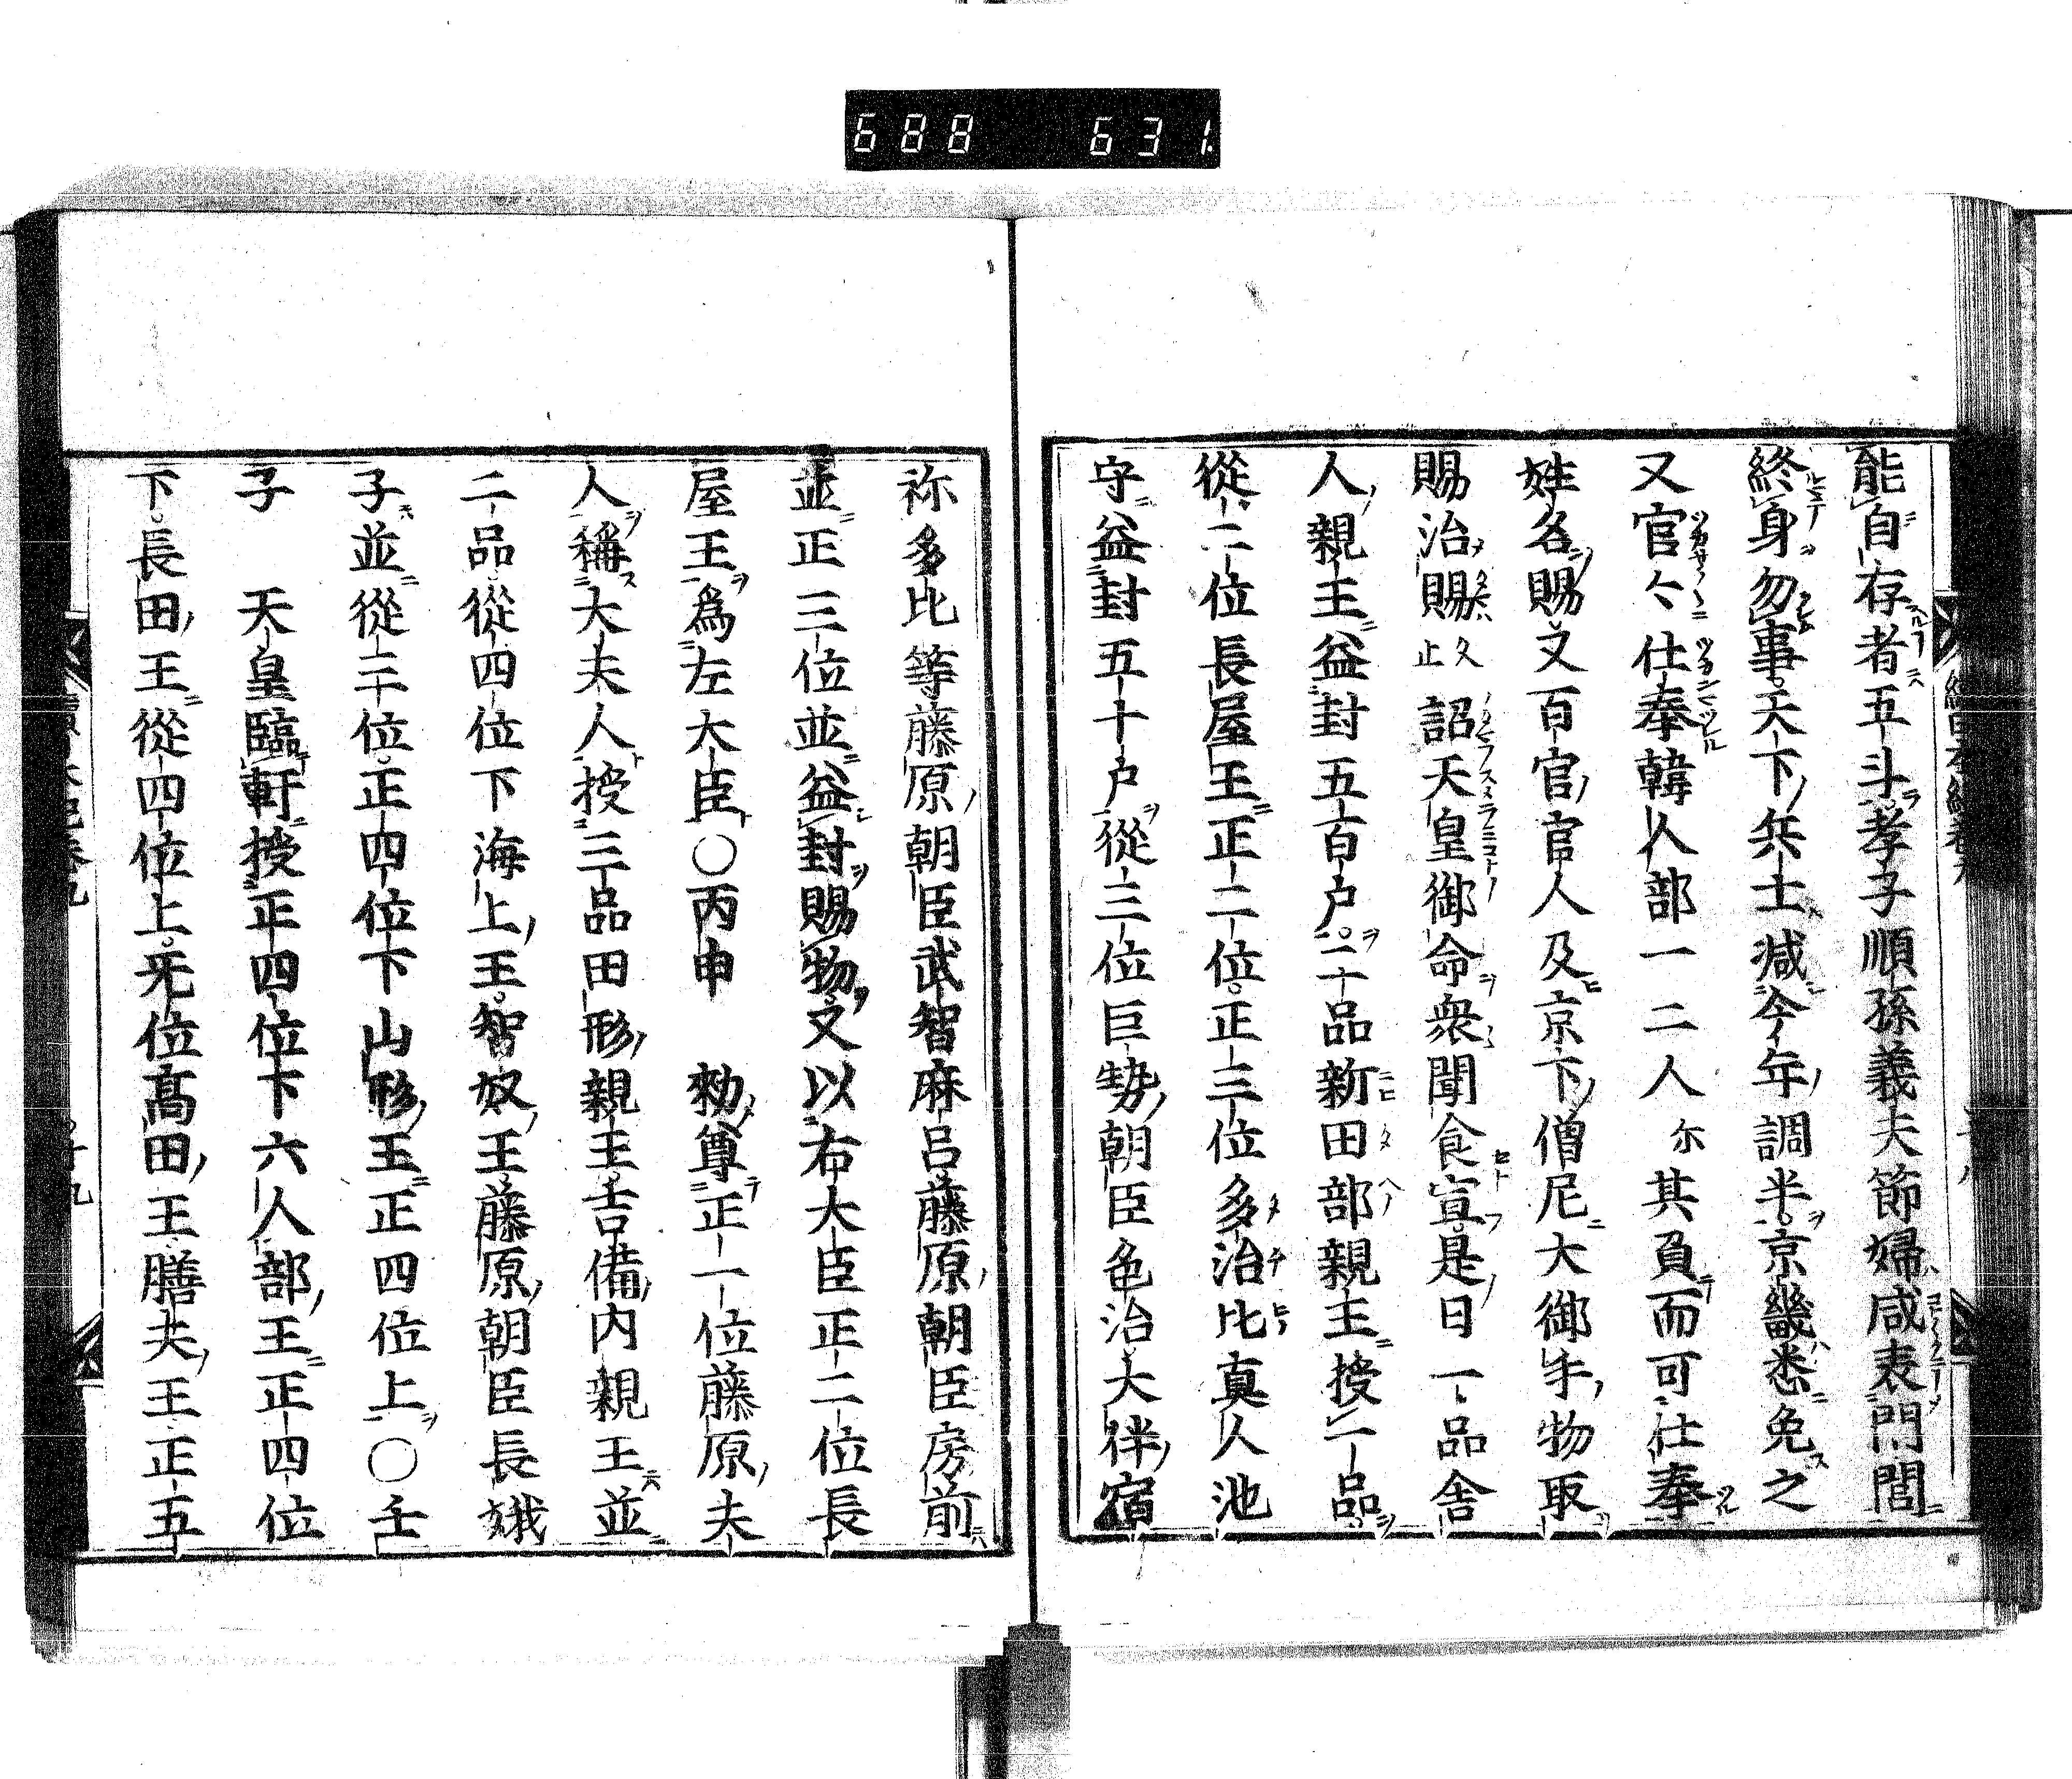 688 631
能自存者五斗孝子順孫義夫節婦咸表門閭
終身勿事天下兵士減今年調半京畿悉免之
又官々仕奉韓人部一二人尓其負而可仕奉
姓名賜又百官官人及京下僧尼大御手物取
賜治賜久止詔天皇御命衆聞食宣是日一品舎
人親王益封五百戸二品新田部親王授一品
從二位長屋王正二位正三位多治比真人池
守益封五十戸從三位巨勢朝臣邑治大伴宿
祢多比等藤原朝臣武智麻呂藤原朝臣房前
並正三位並益封賜物又以右大臣正二位長
屋王為左大臣〇丙申 勑尊正一位藤原夫
人稱大夫人授三品田形親王吉備内親王並
二品從四位下海上王智奴王藤原朝臣長娥
子並從三位正四位下山形王正四位上〇壬
子 天皇臨軒授正四位下六人部王正四位
下長田王從四位上无位髙田王膳夫王正五